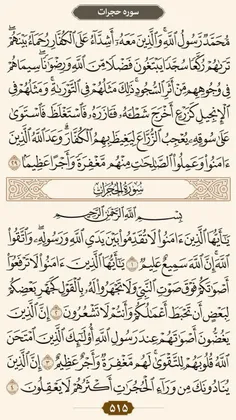 سوره حجرات
مُّحَمَّدٌ رَّسُولُ اللَّهِ وَالَّذِينَ مَعَهُ أَشِدَّاءُ عَلَى الْكُفَّارِ رُحَمَاءُ بَيْنَهُمْ
تَرَاهُمْ رُكَّعًا سُجَّدًا يَبْتَغُونَ فَضْلًا مِّنَ اللَّهِ وَرِضْوَانًا سِيمَاهُمْ
فِي وُجُوهِهِم مِّنْ أَثَرِ السُّجُودِ ذَٰلِكَ مَثَلُهُمْ فِي التَّوْرَاةِ وَمَثَلُهُمْ فِي
الْإِنجِيلِ كَزَرْعٍ أَخْرَجَ شَطْأَهُ فَآزَرَهُ فَاسْتَغْلَظَ فَاسْتَوَىٰ
عَلَىٰ سُوقِهِ يُعْجِبُ الزُّرَّاعَ لِيَغِيظَ بِهِمُ الْكُفَّارَ وَعَدَ اللَّهُ الَّذِينَ
آمَنُوا وَعَمِلُوا الصَّالِحَاتِ مِنْهُم مَّغْفِرَةً وَأَجْرًا عَظِيمًا ٢٩
سُورَةُ الْحُجُرَاتِ
بِسْمِ اللَّهِ الرَّحْمَٰنِ الرَّحِيمِ
يَا أَيُّهَا الَّذِينَ آمَنُوا لَا تُقَدِّمُوا بَيْنَ يَدَيِ اللَّهِ وَرَسُولِهِ وَاتَّقُوا
اللَّهَ إِنَّ اللَّهَ سَمِيعٌ عَلِيمٌ ١ يَا أَيُّهَا الَّذِينَ آمَنُوا لَا تَرْفَعُوا
أَصْوَاتَكُمْ فَوْقَ صَوْتِ النَّبِيِّ وَلَا تَجْهَرُوا لَهُ بِالْقَوْلِ كَجَهْرِ بَعْضِكُمْ
لِبَعْضٍ أَن تَحْبَطَ أَعْمَالُكُمْ وَأَنتُمْ لَا تَشْعُرُونَ ٢ إِنَّ الَّذِينَ
يَغُضُّونَ أَصْوَاتَهُمْ عِندَ رَسُولِ اللَّهِ أُولَٰئِكَ الَّذِينَ امْتَحَنَ
اللَّهُ قُلُوبَهُمْ لِلتَّقْوَىٰ لَهُم مَّغْفِرَةٌ وَأَجْرٌ عَظِيمٌ ٣ إِنَّ الَّذِينَ
يُنَادُونَكَ مِن وَرَاءِ الْحُجُرَاتِ أَكْثَرُهُمْ لَا يَعْقِلُونَ ٤
٥١٥